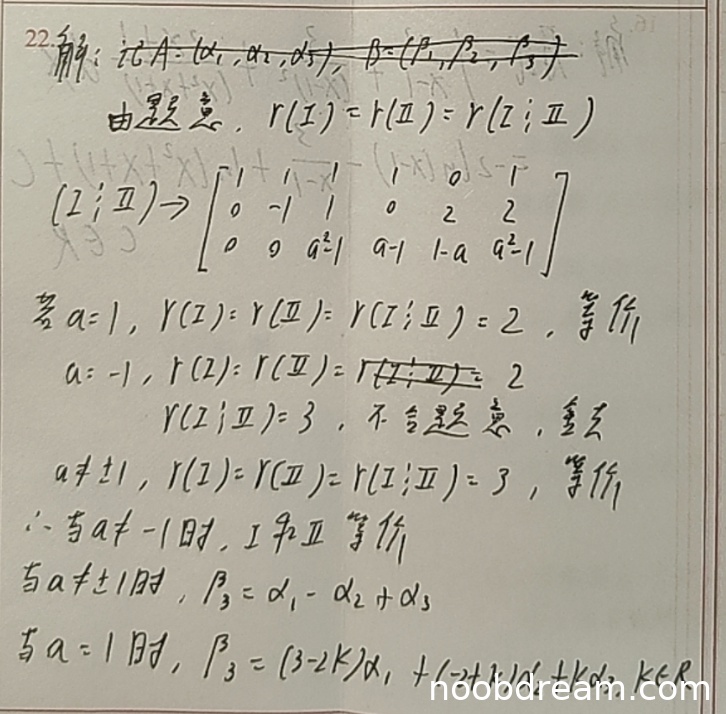 22.解：记A=(α₁,α₂,α₃), B=(β₁,β₂,β₃)
由题意，r(I)=r(II)=r(I¦II)
(I¦II)→[1 1 1 1 0 1
0 -1 1 0 2 2
0 0 a²-1 a-1 1-a a²-1]
若a=1, r(I)=r(II)=r(I¦II)=2，等价
a=-1, r(I)=r(II)=r(I¦II)=2
r(I¦II)=3，不合题意，舍去
a≠±1, r(I)=r(II)=r(I¦II)=3，等价
∴当a≠-1时，I和II等价
当a≠±1时，β₃=α₁-α₂+α₃
当a=1时，β₃=(3-2k)α₁+(-2+k)α₂+kα₃, k∈R
noobdream.com